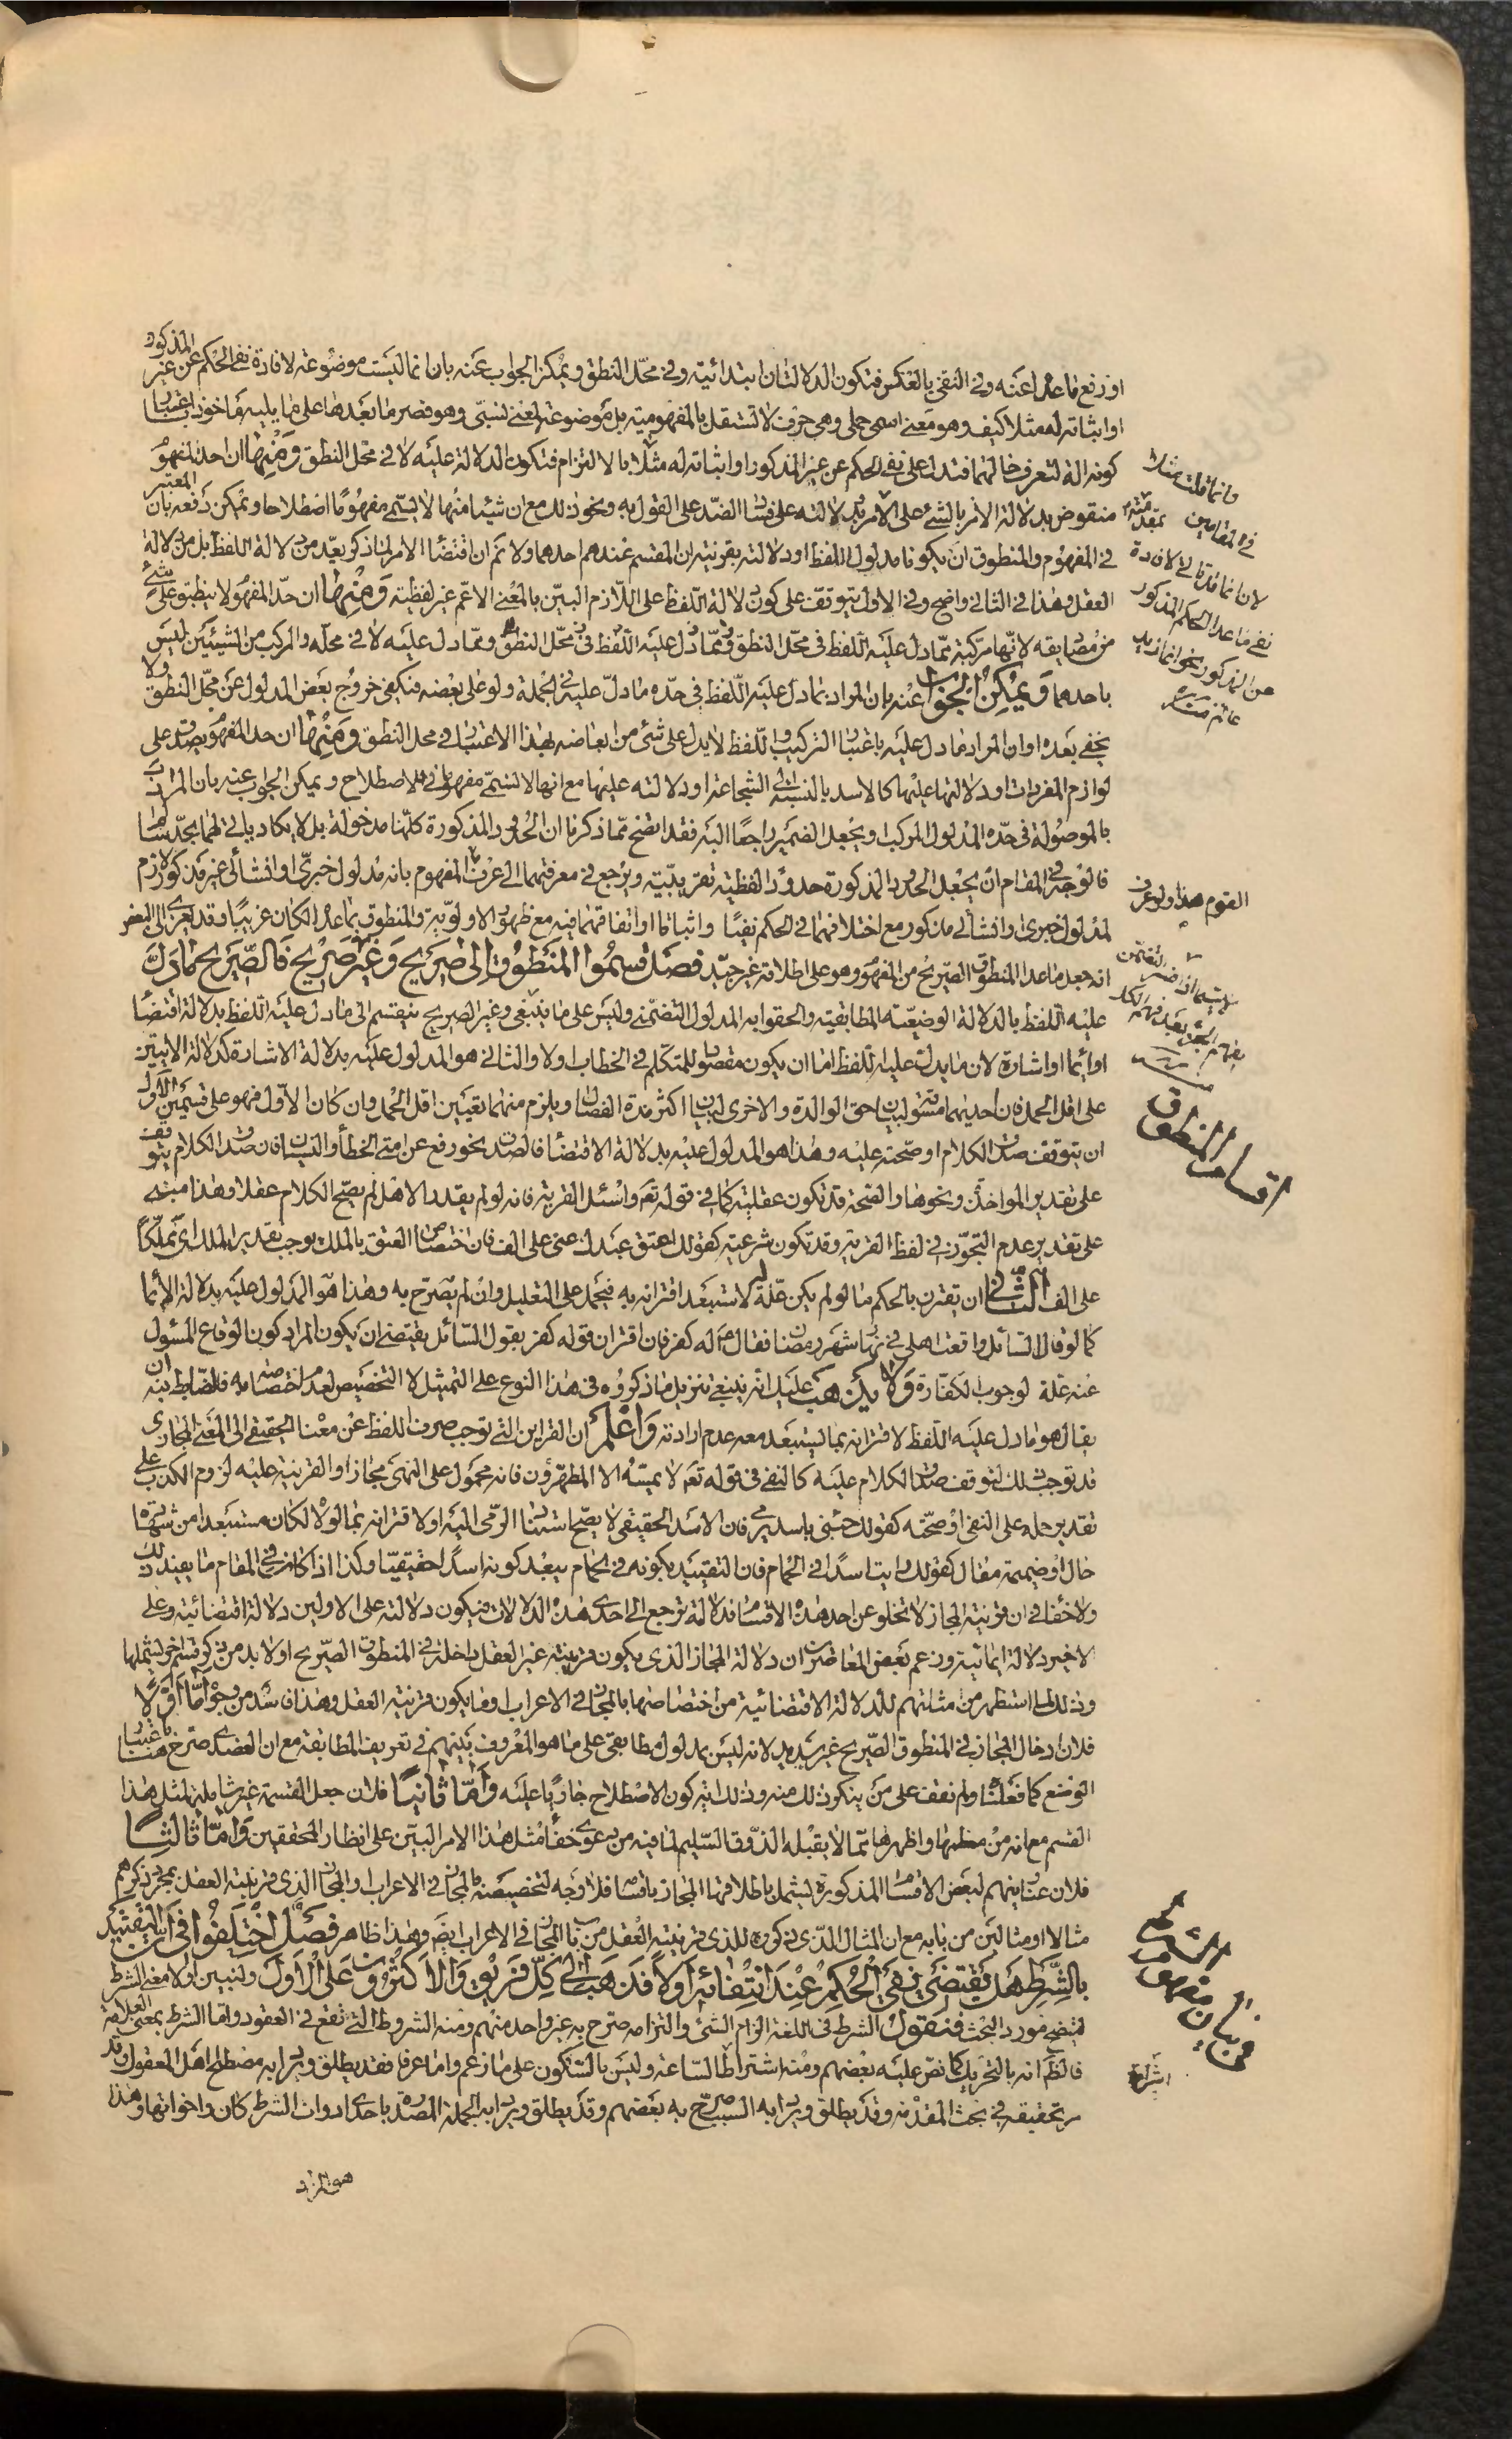 او رفع ما عداه عنه وفى النفى بالعكس فتكون الدلالتان ابتدائية وفى محل النطق ويمكن الجواب عنه بان انما ليست موضوعة لافادة نفى الحكم عن غير المذكور
او اثباته له مثلا كيف وهو معنى اسمى جملى وهى حرف لا تستقل بالمفهومية بل موضوعة لمعنى نسبى وهو قصر ما بعدها على ما يليه ماخوذا باعتبار
كونه الة لتعرف حالهما فتدل على نفى الحكم عن غير المذكور او اثباته له مثلا بالالتزام فتكون الدلالة عليه لا فى محل النطق ومنها ان حد المفهوم
منقوض بدلالة الامر بالشئ على الامر به ودلالته على فساد الضد على القول به ونحو ذلك مع ان شيئا منها لا يسمى مفهوما اصطلاحا ويمكن دفعه بان المعتبر
فى المفهوم والمنطوق ان يكونا مدلول اللفظ او دلالته بقرينة ان المقسم عندهم احدهما ولا نم ان اقتضاء الامر لما ذكر يعد من دلالة اللفظ بل من دلالة
العقل وهذا فى الثانى واضح وفى الاول يتوقف على كون دلالة اللفظ على اللازم البين بالمعنى الاعم غير لفظية ومنها ان حد المفهوم لا ينطبق على شئ
من مصاديقه لانها مركبة مما دل عليه اللفظ فى محل النطق ومما دل عليه لا فى محله والمركب من الشيئين ليس
باحدهما ويمكن الجواب عنه بان المراد بما دل عليه اللفظ فى حده ما دل عليه فى الجملة ولو على بعضه فيكفى خروج بعض المدلول عن محل النطق ولا
يخفى بعده او ان المراد ما دل عليه باعتبار التركيب واللفظ لا يدل على شئ من ابعاضه بهذا الاعتبار فى محل النطق ومنها ان حد المفهوم يصدق على
لوازم المفردات او دلالتها عليها كالاسد بالنسبة الى الشجاعة او دلالته عليها مع انها لا تسمى مفهوما فى الاصطلاح ويمكن الجواب عنه بان المراد
بالموصولة فى حده المدلول المركب ويجعل الضمير راجعا اليه فقد اتضح مما ذكرنا ان الحدود المذكورة كلها مدخولة بل لا يكاد ياتى لهما بحد سالم
فالوجه فى المقام ان يجعل الحدود المذكورة حدودا لفظية تقريبية ويرجع فى معرفتهما الى العرف المفهوم بانه مدلول خبرى او انشائى غير مذكور لازم
لمدلول خبرى او انشائى مذكور مع اختلافهما فى الحكم نفيا واثباتا او اتفاقهما فيه مع ظهور الاولوية والمنطوق بما عداه لكان قريبا وقد يعزى الى البعض
انه جعل ما عدا المنطوق الصريح من المفهوم وهو على اطلاقه غير جيد فصل قسموا المنطوق الى صريح وغير صريح فالصريح ما دل
عليه اللفظ بالدلالة الوضعية المطابقية والحقوا به المدلول التضمنى وليس على ما ينبغى وغير الصريح ينقسم الى ما دل عليه اللفظ بدلالة اقتضاء
او ايماء او اشارة لان ما يدل عليه اللفظ اما ان يكون مقصودا للمتكلم فى الخطاب او لا والثانى هو المدلول عليه بدلالة الاشارة كدلالة الايتين
على اقل الحمل فان احديهما مسوقة لبيان حق الوالدة والاخرى لبيان اكثر مدة الفصال ويلزم منهما تعيين اقل الحمل وان كان الاول فهو على قسمين الاول
ان يتوقف صدق الكلام او صحته عليه وهذا هو المدلول عليه بدلالة الاقتضاء فالصدق نحو رفع عن امتى الخطأ والنسيان فان صدق الكلام يتوقف
على تقدير المواخذة ونحوها والصحة قد تكون عقلية كما فى قوله تعم واسئل القرية فانه لو لم يقدر الاهل لم يصح الكلام عقلا وهذا مبنى
على تقدير عدم التجوز فى لفظ القرية وقد تكون شرعية كقولك اعتق عبدك عنى على الف فان اختصاص العتق بالملك يوجب تقدير الملك اى مملكا
على الف الثانى ان يقترن بالحكم ما لو لم يكن علة له لاستبعد اقترانه به فيحمل على التعليل وان لم يصرح به وهذا هو المدلول عليه بدلالة الايماء
كما لو قال السائل واقعت اهلى فى نهار شهر رمضان فقال ص له كفر فان اقتران قوله كفر بقول السائل يقتضى ان يكون المراد كون الوقاع المسئول
عنه علة لوجوب الكفارة ولا يذهب عليك انه ينبغى تنزيل ما ذكروه فى هذا النوع على التمثيل لا التخصيص لعدم اختصاصه به فالضابط فيه ان
يقال هو ما دل عليه اللفظ لاقترانه بما يستبعد معه عدم ارادته واعلم ان القراين التى توجب صرف اللفظ عن معناه الحقيقى الى المعنى المجازى
قد توجب ذلك لتوقف صدق الكلام عليه كالنفى فى قوله تعم لا يمسه الا المطهرون فانه محمول على النهى مجازا والقرينة عليه لزوم الكذب على
تقدير حمله على النفى او صحته كقولك جئنى باسد يرمى فان الاسد الحقيقى لا يصح استناد الرمى اليه او لاقترانه بما لولاه لكان مستبعدا من شهادة
حال او ضميمة مقال كقولك رايت اسدا فى الحمام فان التقييد بكونه فى الحمام يبعد كونه اسدا حقيقيا وكذا اذا كان فى المقام ما يفيد ذلك
ولا خفاء فى ان قرينة المجاز لا تخلو عن احد هذه الاقسام فدلالته ترجع الى احدى هذه الدلالات فيكون دلالته على الاولين دلالة اقتضائية وعلى
الاخير دلالة ايمائية وزعم بعض المعاصرين ان دلالة المجاز الذى يكون قرينته غير العقل داخلة فى المنطوق الصريح او لا بد من ذكر قسم اخر يشملها
وذلك لما استظهر من مثالتهم للدلالة الاقتضائية من اختصاصها بالمجاز فى الاعراب وما يكون قرينته العقل وهذا فاسد من وجوه اما اولا
فلان ادخال المجاز فى المنطوق الصريح غير سديد لانه ليس بمدلول مطابقى على ما هو المعروف بينهم فى تعريف المطابقة مع ان العضدى صرح هنا باعتبار
الوضع كما فعلنا ولم نقف على من ينكر ذلك منه وذلك اية كون الاصطلاح جاريا عليه واما ثانيا فلان جعل القسمة غير شاملة لمثل هذا
القسم مع انه من معظمها واظهرها مما لا يقبله الذوق السليم لما فيه من دعوى خفاء مثل هذا الامر البين على انظار المحققين واما ثالثا
فلان عنايتهم لبعض الاقسام المذكورة يشمل باطلاقها المجاز باقسامه فلا وجه لتخصيصه بالمجاز فى الاعراب والمجاز الذى قرينته العقل بمجرد ذكرهم
مثالا او مثالين من بابه مع ان المثال الذى ذكروه للذى قرينته العقل من باب المجاز فى الاعراب ايضا وهذا ظاهر فصل اختلفوا فى ان التقييد
بالشرط هل يقتضى نفى الحكم عند انتفائه او لا فذهب الى كل فريق والاكثرون على الاول ولنبين اولا معنى الشرط
ليتضح مورد البحث فنقول الشرط فى اللغة الزام الشئ والتزامه صرح به غير واحد منهم ومنه الشروط التى تقع فى العقود واما الشرط بمعنى العلامة
فالظاهر انه بالتحريك كما نص عليه بعضهم ومنه اشتراط الساعة وليس بالسكون على ما زعم واما عرفا فقد يطلق ويراد به مصطلح اهل المعقول وقد
مر تحقيقه فى بحث المقدمة وقد يطلق ويراد به السبب صرح به بعضهم وقد يطلق ويراد به الجملة المصدرة باحدى ادوات الشرط كان واخواتها وهذا
هو المراد
وانما قلت مثلا
فى المقامين
لان انما قد تاتى لافادة
نفى ما عدا الحكم المذكور
عن المذكور نحو انما زيد
عالم منه
القوم هذا ولو عرف
اقسام المنطوق
فى بيان مفهوم الشرط
اشراط